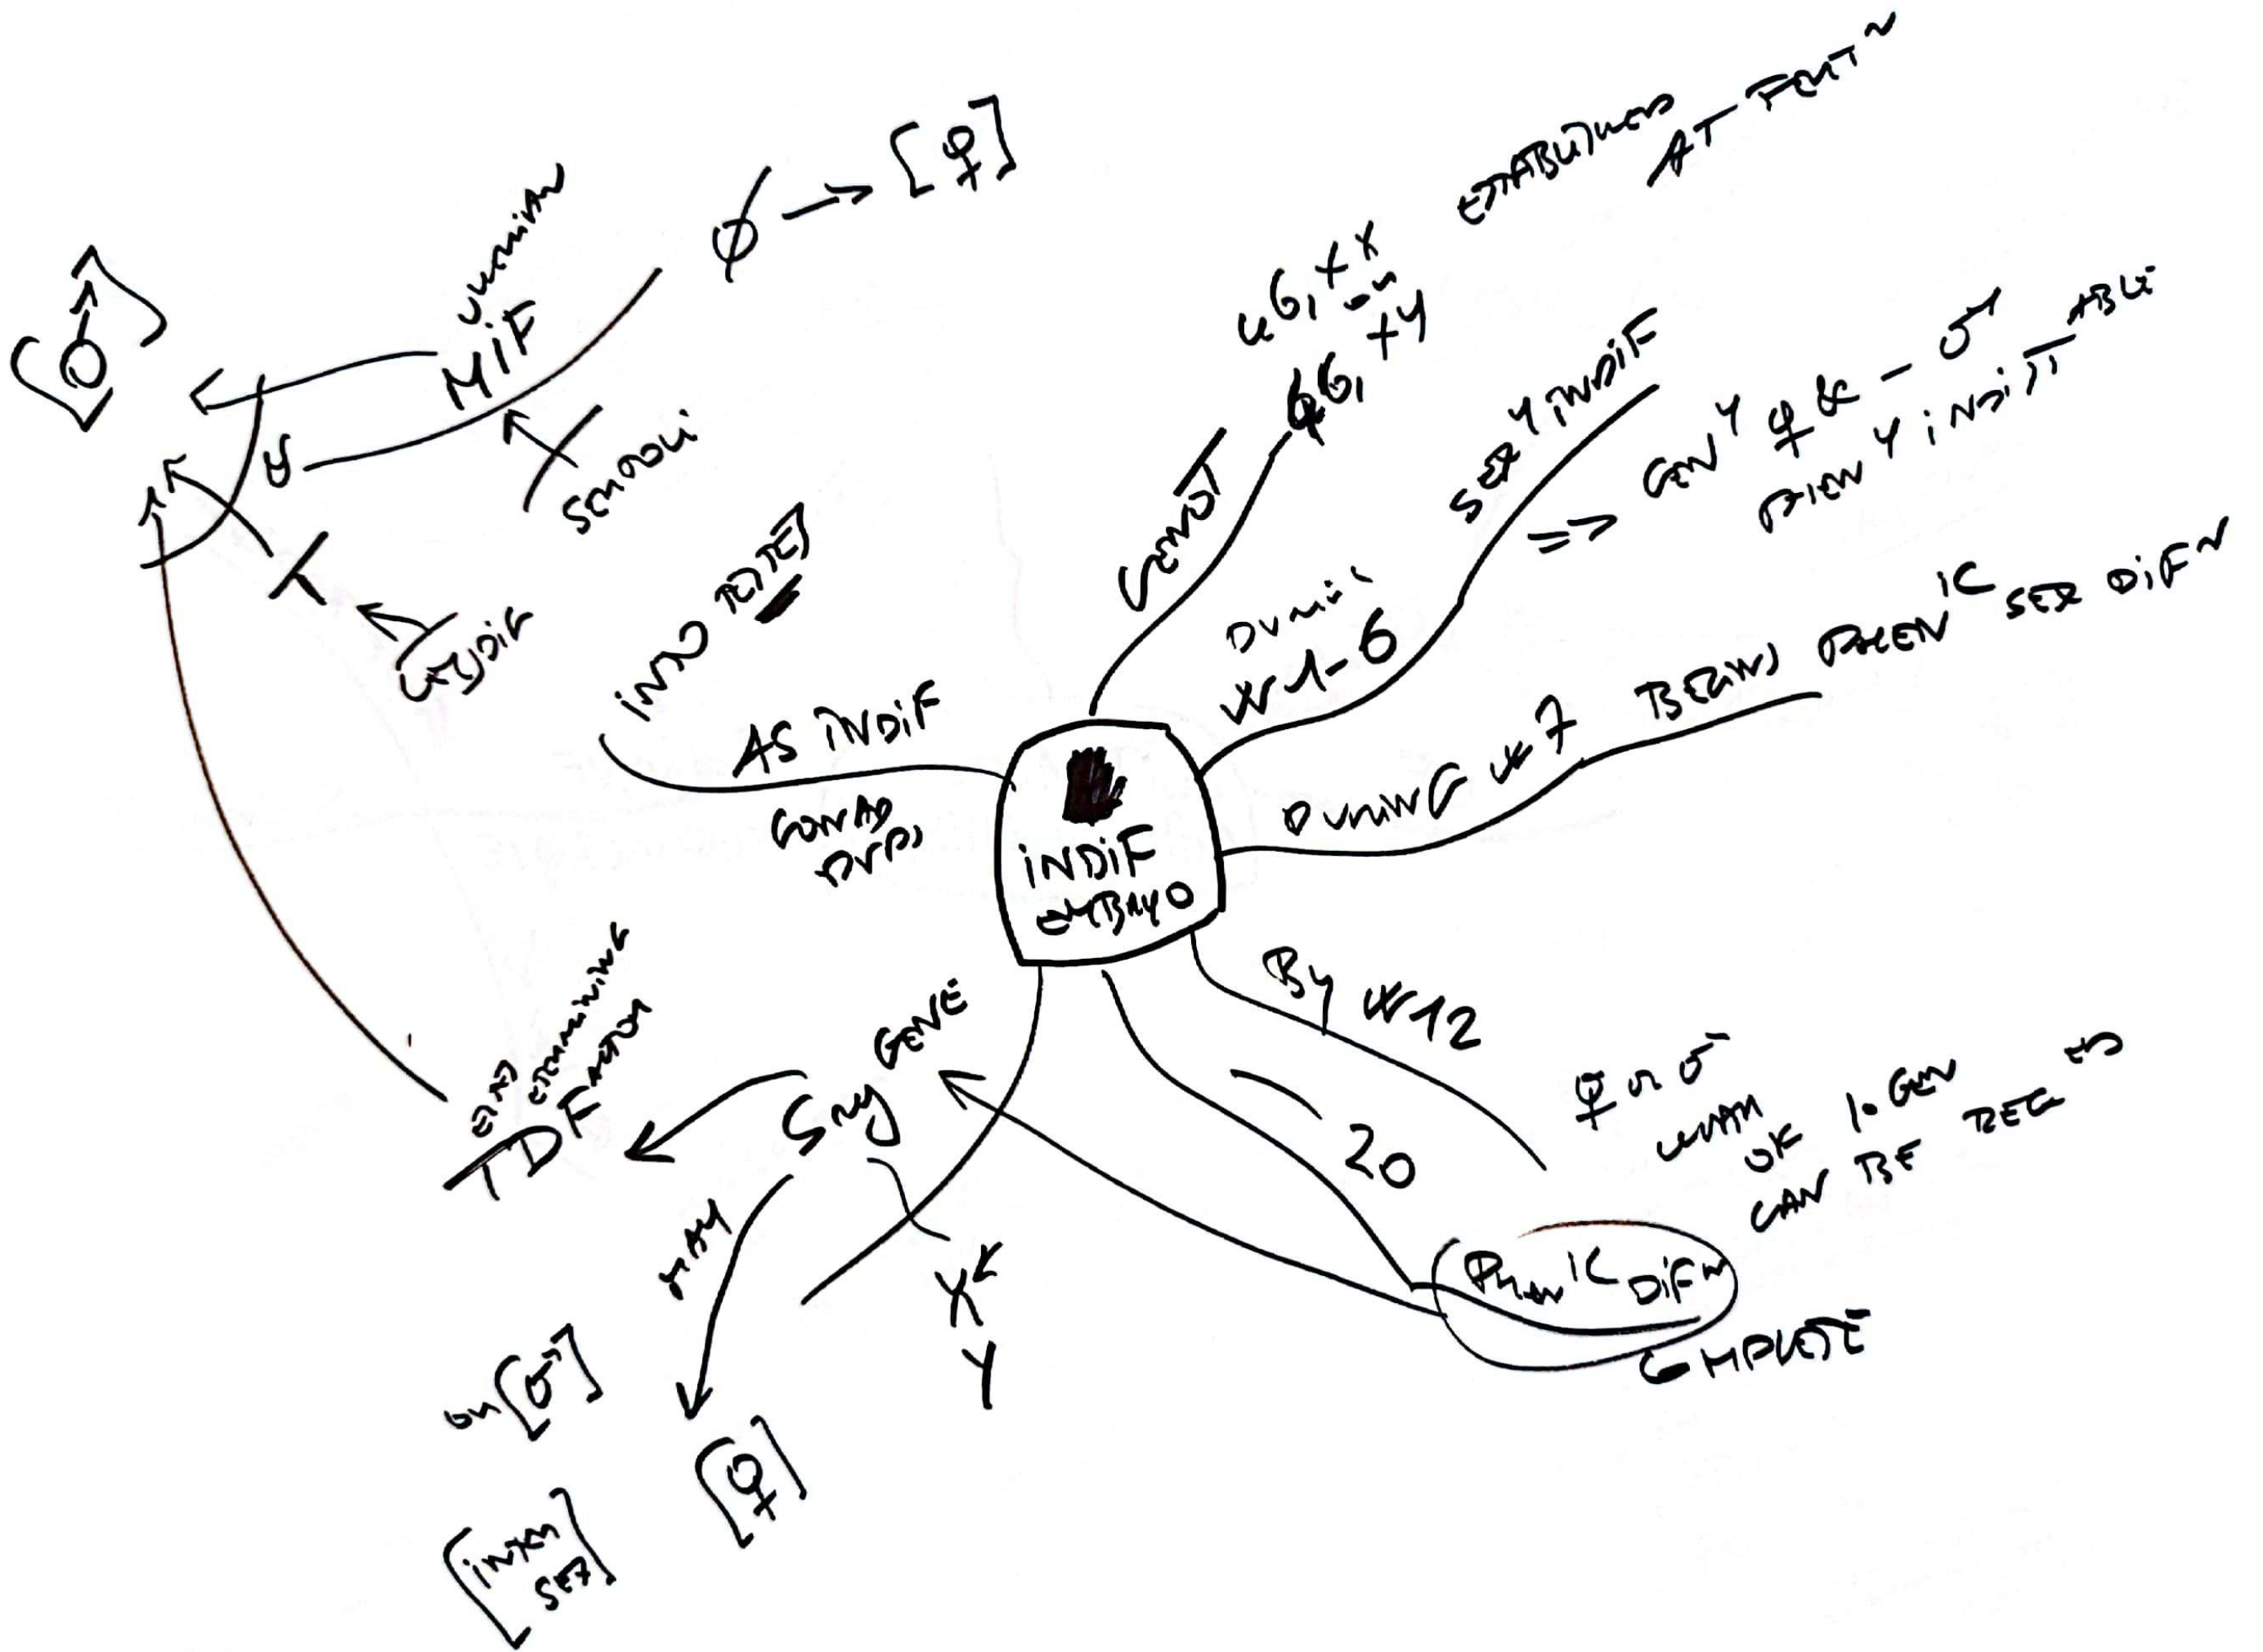 INDIF
EMBRYO
GENOT
46, XX
or
46, XY
ESTABLISHED
AT FERT N
DURING
W 1-6
SEX Y INDIF
=> GEN Y ♀ & - ♂
PHEN Y INDIST ABLE
DURING W 7
BEGINS PHEN IC SEX DIF N
By W 12
♀ or ♂
CAN BE REC ED
20
PHEN IC DIF N
COMPLETE
Sry GENE
X
Y
MAY
[♀]
or [♂]
[INTER
SEX]
TDF
DETERMINING
FACTOR
AS INDIF
GONAD
DVPS
INTO TESTES
T
LEYDIG
MIF
SERTOLI
[♂]
Ø -> [♀]